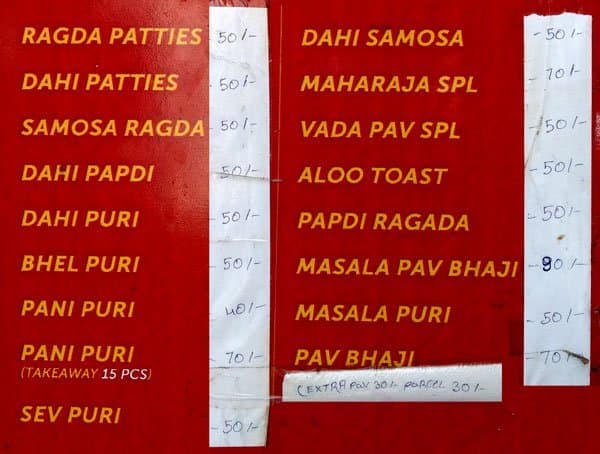 RAGDA PATTIES 50/-
DAHI PATTIES 50/-
SAMOSA RAGDA 50/-
DAHI PAPDI 50/-
DAHI PURI 50/-
BHEL PURI 50/-
PANI PURI 40/-
PANI PURI 70/-
(TAKEAWAY 15 PCS)
SEV PURI 50/-
DAHI SAMOSA 50/-
MAHARAJA SPL 70/-
VADA PAV SPL 50/-
ALOO TOAST 50/-
PAPDI RAGADA 50/-
MASALA PAV BHAJI 90/-
MASALA PURI 50/-
PAV BHAJI 70/-
(EXTRA PAV 30/- PARCEL 30/-